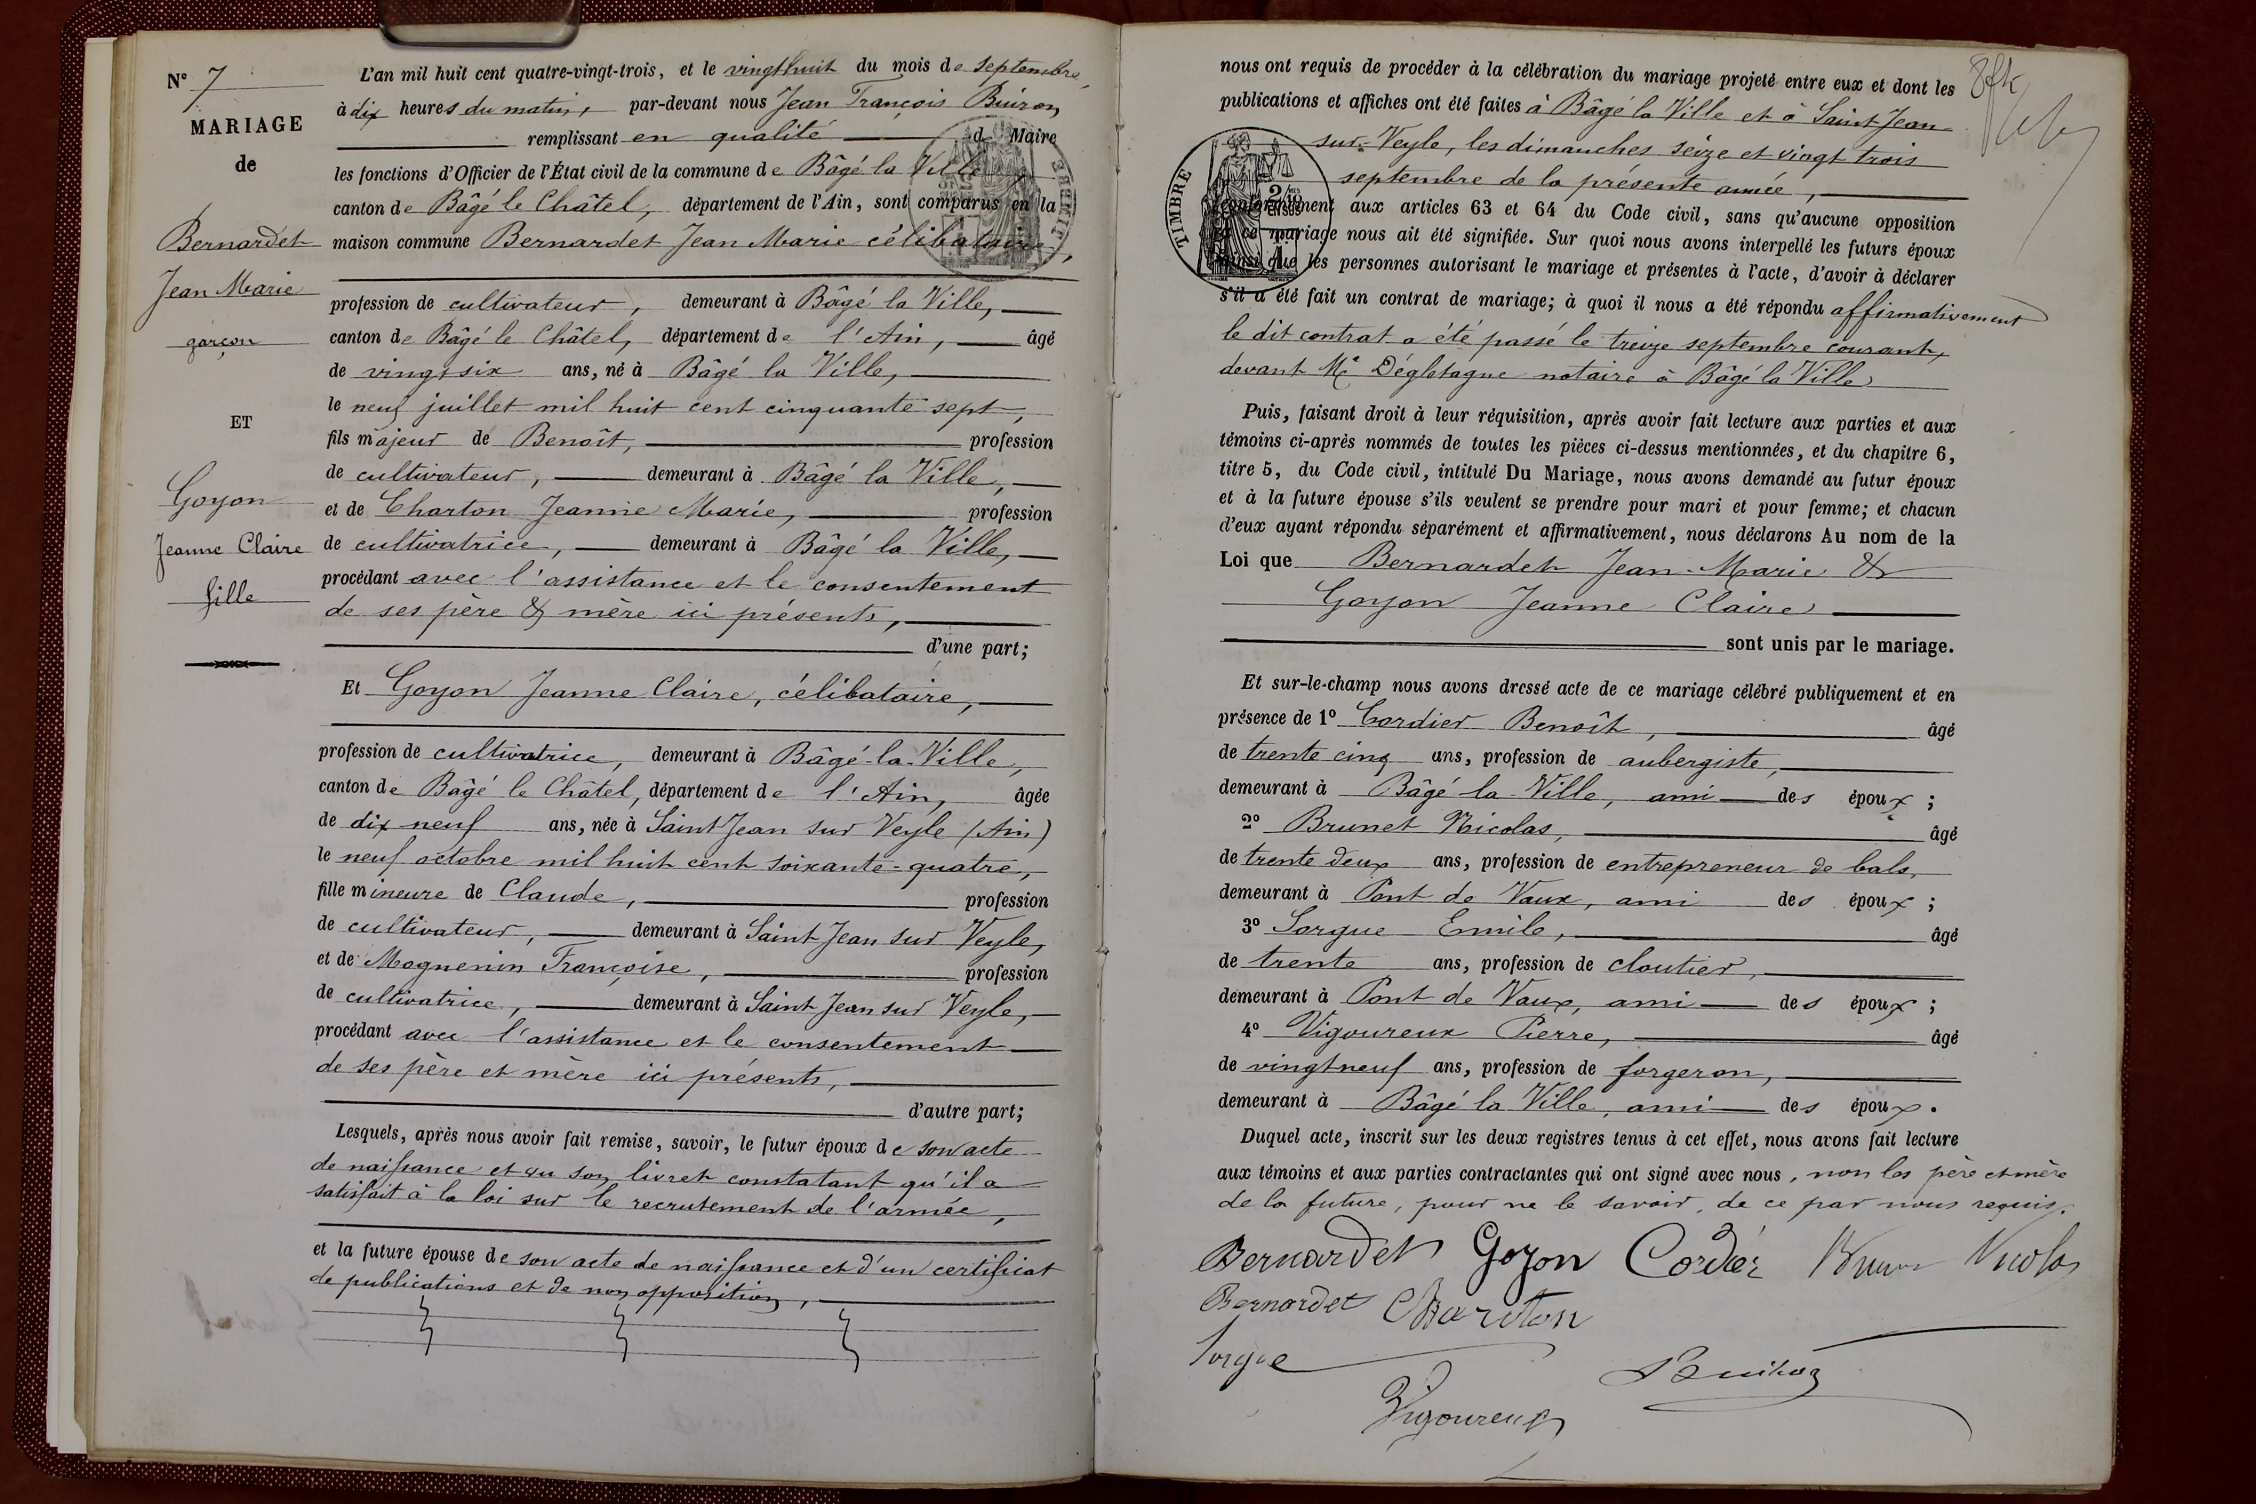 N° 7
MARIAGE
de
Bernardet
Jean Marie
garçon
ET
Goyon
Jeanne Claire
fille
L'an mil huit cent quatre-vingt-trois, et le vingthuit du mois de septembre,
à dix heures du matin, par-devant nous Jean François Buiron,
remplissant en qualité de Maire
les fonctions d'Officier de l'État civil de la commune de Bâgé la Ville,
canton de Bâgé le Châtel, département de l'Ain, sont comparus en la
maison commune Bernardet Jean Marie célibataire,
profession de cultivateur, demeurant à Bâgé la Ville,
canton de Bâgé le Châtel, département de l'Ain, âgé
de vingt six ans, né à Bâgé la Ville,
le neuf juillet mil huit cent cinquante sept,
fils majeur de Benoît, profession
de cultivateur, demeurant à Bâgé la Ville,
et de Charton Jeanne Marie, profession
de cultivatrice, demeurant à Bâgé la Ville,
procédant avec l'assistance et le consentement
de ses père & mère ici présents,
d'une part;
Et Goyon Jeanne Claire, célibataire,
profession de cultivatrice, demeurant à Bâgé-la-Ville,
canton de Bâgé le Châtel, département de l'Ain, âgée
de dix neuf ans, née à Saint Jean sur Veyle (Ain)
le neuf octobre mil huit cent soixante-quatre,
fille mineure de Claude, profession
de cultivateur, demeurant à Saint Jean sur Veyle,
et de Magnenin Françoise, profession
de cultivatrice, demeurant à Saint Jean sur Veyle,
procédant avec l'assistance et le consentement
de ses père et mère ici présents,
d'autre part;
Lesquels, après nous avoir fait remise, savoir, le futur époux de son acte
de naissance et vu son livret constatant qu'il a
satisfait à la loi sur le recrutement de l'armée,
et la future épouse de son acte de naissance et d'un certificat
de publications et de non opposition,
nous ont requis de procéder à la célébration du mariage projeté entre eux et dont les
publications et affiches ont été faites à Bâgé la Ville et à Saint Jean
sur Veyle, les dimanches seize et vingt trois
septembre de la présente année,
conformément aux articles 63 et 64 du Code civil, sans qu'aucune opposition
à ce mariage nous ait été signifiée. Sur quoi nous avons interpellé les futurs époux
ainsi que les personnes autorisant le mariage et présentes à l'acte, d'avoir à déclarer
s'il a été fait un contrat de mariage; à quoi il nous a été répondu affirmativement
le dit contrat a été passé le treize septembre courant,
devant Me Dégletagne notaire à Bâgé la Ville
Puis, faisant droit à leur réquisition, après avoir fait lecture aux parties et aux
témoins ci-après nommés de toutes les pièces ci-dessus mentionnées, et du chapitre 6,
titre 5, du Code civil, intitulé Du Mariage, nous avons demandé au futur époux
et à la future épouse s'ils veulent se prendre pour mari et pour femme; et chacun
d'eux ayant répondu séparément et affirmativement, nous déclarons Au nom de la
Loi que Bernardet Jean-Marie &
Goyon Jeanne Claire
sont unis par le mariage.
Et sur-le-champ nous avons dressé acte de ce mariage célébré publiquement et en
présence de 1° Cordier Benoît, âgé
de trente cinq ans, profession de aubergiste,
demeurant à Bâgé la Ville, ami des époux;
2° Brunet Nicolas, âgé
de trente deux ans, profession de entrepreneur de bals,
demeurant à Pont de Vaux, ami des époux;
3° Sorgue Emile, âgé
de trente ans, profession de cloutier,
demeurant à Pont de Vaux, ami des époux;
4° Vigoureux Pierre, âgé
de vingt neuf ans, profession de forgeron,
demeurant à Bâgé la Ville, ami des époux.
Duquel acte, inscrit sur les deux registres tenus à cet effet, nous avons fait lecture
aux témoins et aux parties contractantes qui ont signé avec nous, non les père et mère
de la future, pour ne le savoir, de ce par nous requis.
Bernardet Goyon Cordier Brunet Nicolas
Bernardet Charton
Sorgue Buiron
Vigoureux
TIMBRE
2/10 EN SUS